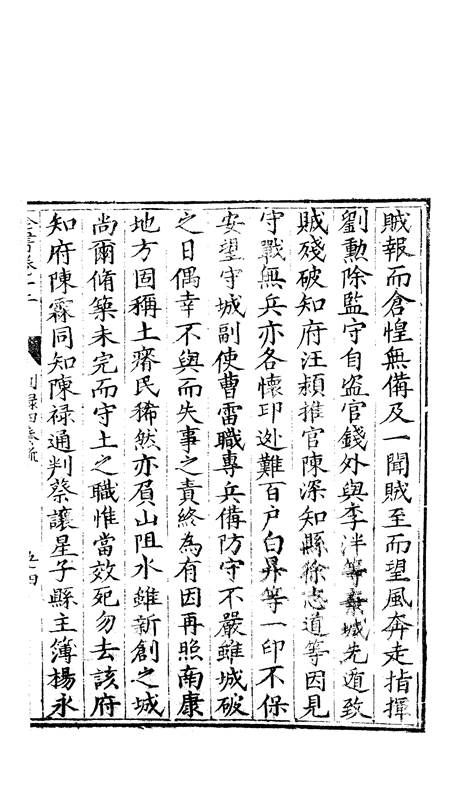 賊報而倉惶無備及一聞賊至而望風奔走指揮
劉勲除監守自盗官錢外與李泮等棄城先遁致
賊殘破知府汪頴推官陳深知縣徐志道等因見
守戰無兵亦各懷印逊難百户白昇等一印不保
安望守城副使曹雷職專兵備防守不嚴雖城破
之日偶幸不與而失事之責終為有因再照南康
地方固稱土瘠民稀然亦負山阻水雖新創之城
尚爾脩築未完而守土之職惟當效死勿去該府
知府陳霖同知陳禄通判蔡讓星子縣主簿楊永
全書卷十二
別録四奏疏
五四